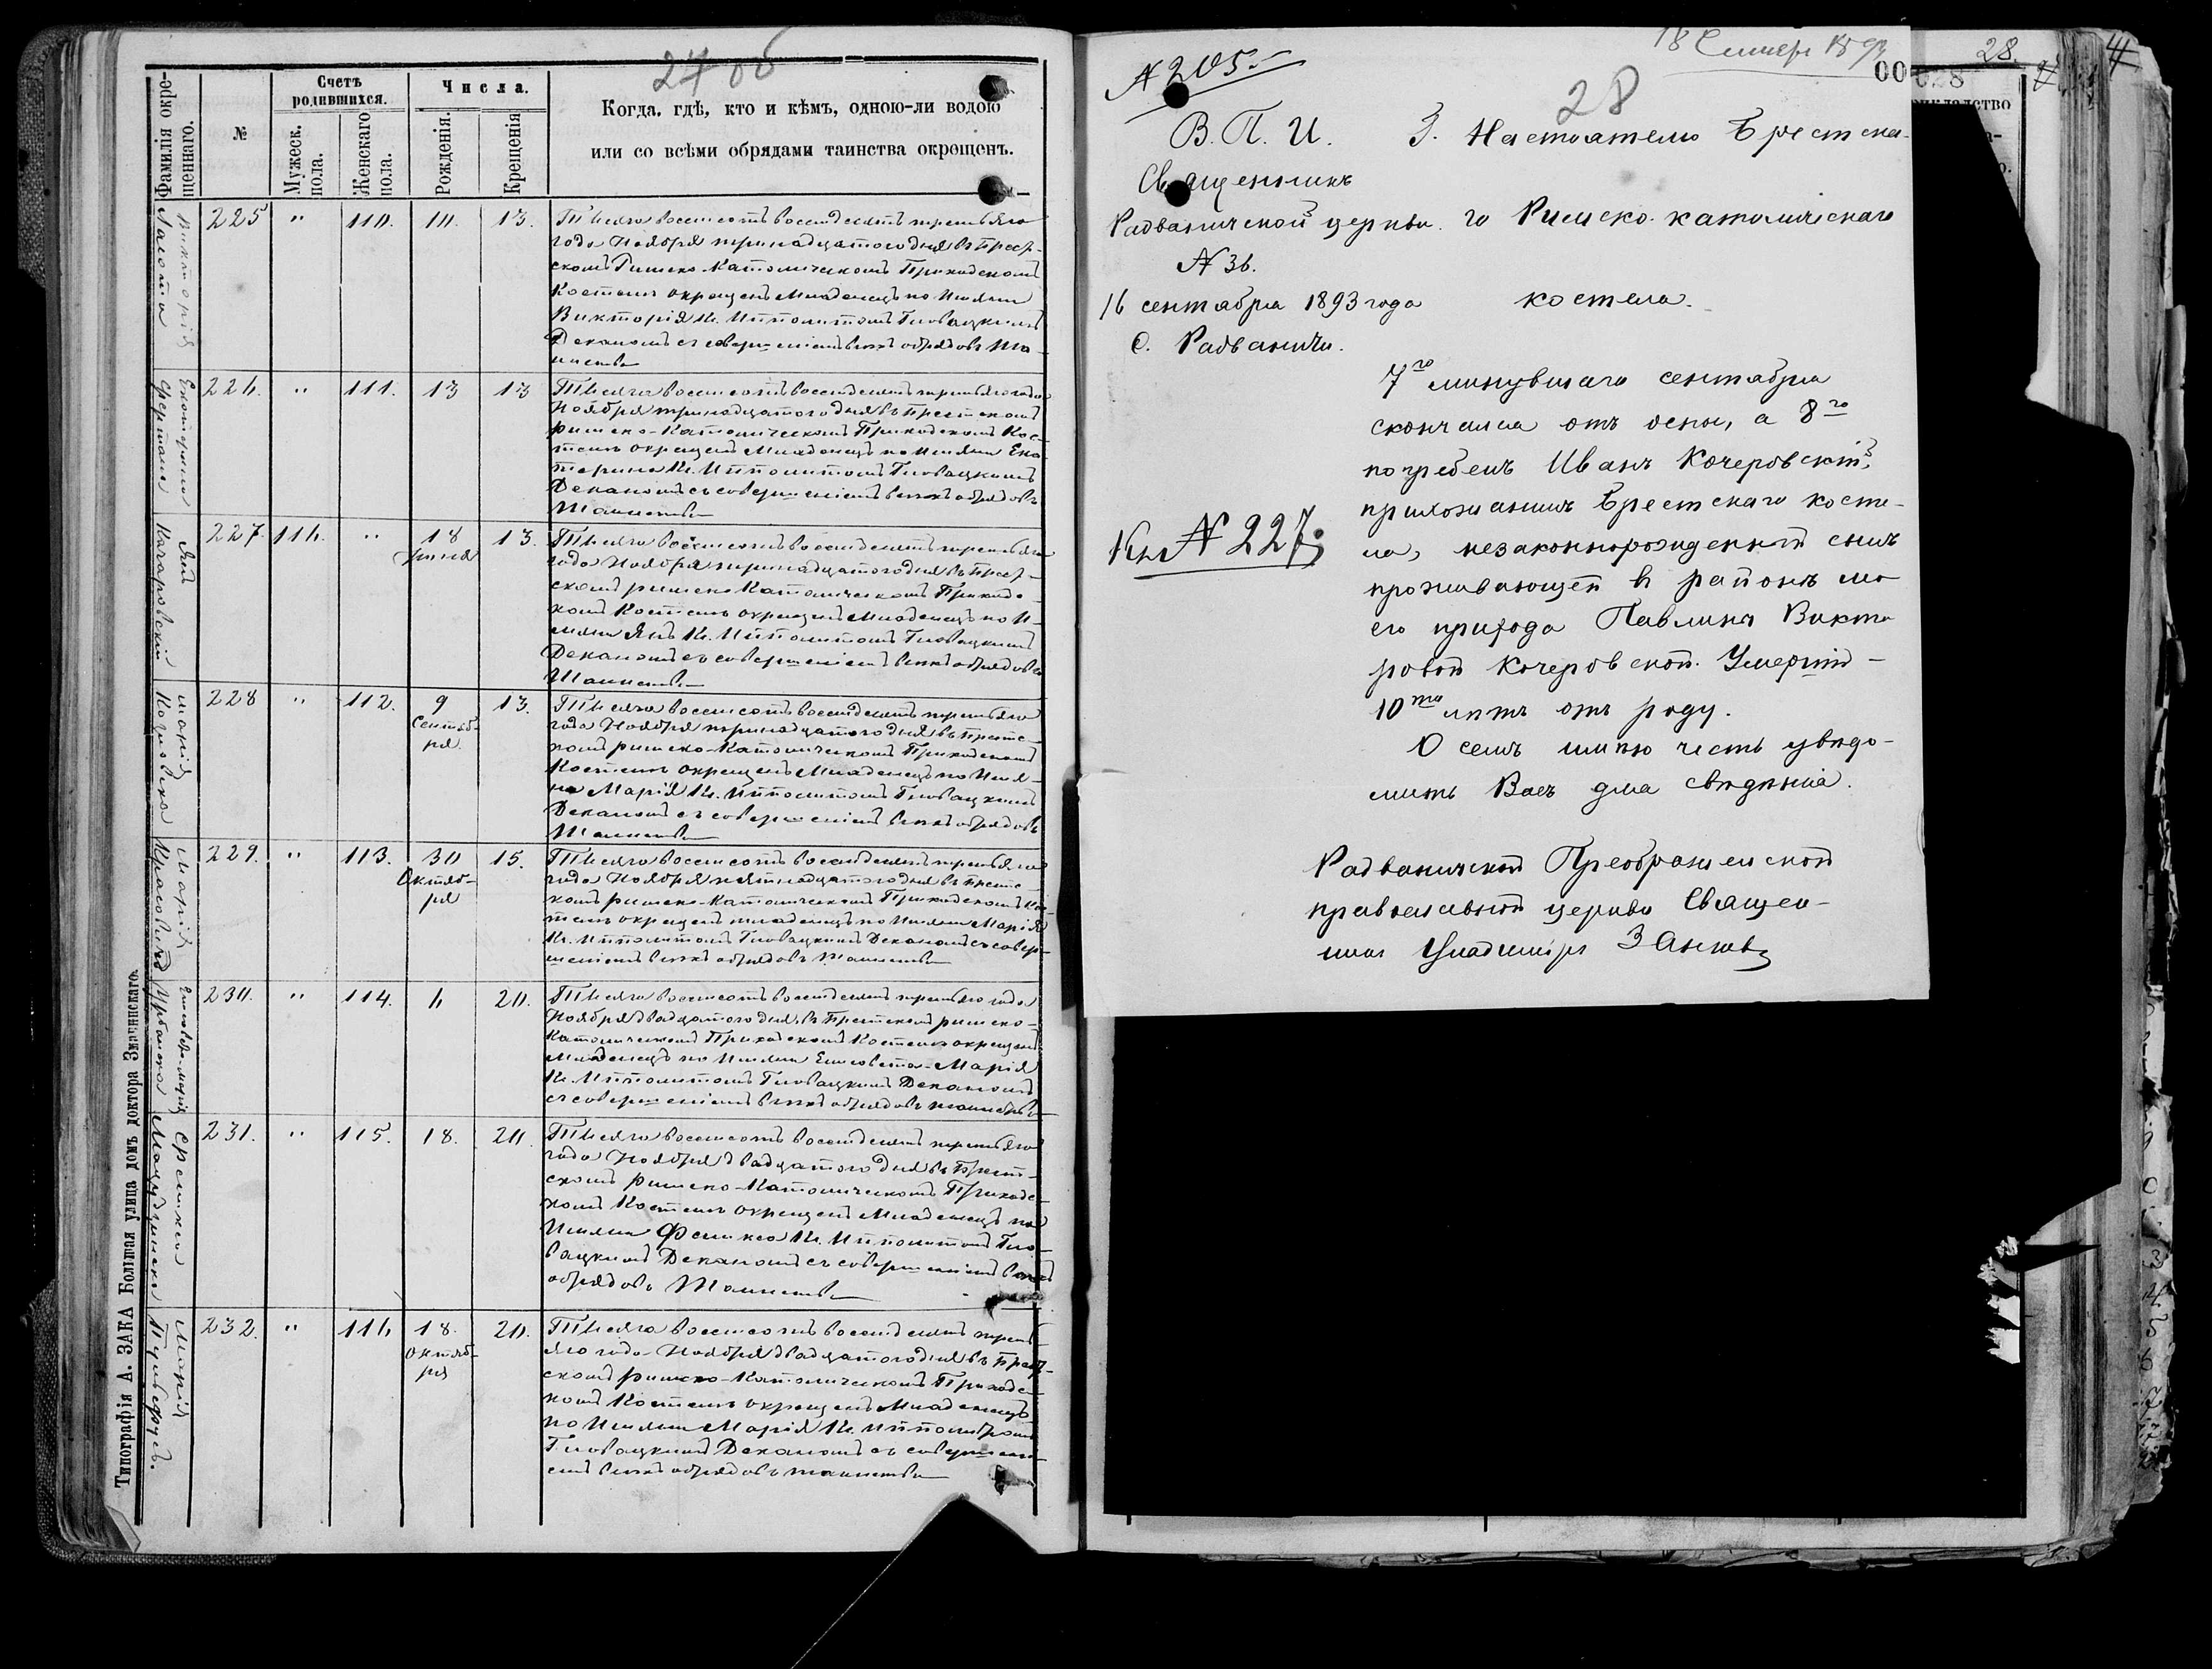 27 об
Фамилія окре-
щеннаго.
№
Счетъ
родившихся.
Мужеск.
пола.
Женскаго
пола.
Числа.
Рожденія.
Крещенія
Когда, гдѣ, кто и кѣмъ, одною-ли водою
или со всѣми обрядами таинства окрещенъ.
Викторія
225 " 110. 10. 13.
Тысяча восемсотъ восемдесятъ третьяго
года Ноября тринадцатого дня въ Брест-
скомъ Римско-Католическомъ Приходскомъ
Костелѣ окрещенъ Младенецъ по Имяни
Викторія Кс. Ипполитомъ Гловацкимъ
Деканомъ съ совершеніемъ всѣхъ обрядовъ Та-
инства
Екатерина
226. " 111. 13 13
Тысяча восемсотъ восемдесятъ третьяго года
Ноября тринадцатого дня въ Брестскомъ
римско-Католическомъ Приходскомъ Кос-
телѣ окрещенъ Младенецъ по Имяни Ека-
терина Кс. Ипполитомъ Гловацкимъ
Деканомъ съ совершеніемъ всѣхъ обрядовъ
Таинства
Янъ
Качаровскій
227. 116. " 18
Іюля 13.
Тысяча восемсотъ восемдесятъ третьяго
года Ноября тринадцатого дня въ Брест-
скомъ римско Католическомъ Приходс-
комъ Костелѣ окрещенъ Младенецъ по И-
мяни Янъ Кс. Ипполитомъ Гловацкимъ
Деканомъ съ совершеніемъ всѣхъ обрядовъ
Таинства
Марія
Козловска
228 " 112. 9
Сентяб-
ря. 13.
Тысяча восемсотъ восемдесятъ третьяго
года Ноября тринадцатого дня въ Брестс-
комъ римско-Католическомъ Приходскомъ
Костелѣ окрещенъ Младенецъ по Имя-
ни Марія Кс. Ипполитомъ Гловацкимъ
Деканомъ съ совершеніемъ всѣхъ обрядовъ
Таинства
Марія
229. " 113. 30
Октяб-
ря 15.
Тысяча восемсотъ восемдесятъ третьяго
года Ноября пятнадцатого дня въ Брестс-
комъ римско-Католическомъ Приходскомъ Ко-
стелѣ окрещенъ младенецъ по Имяни Марія
Кс. Ипполитомъ Гловацкимъ Деканомъ съ совер-
шеніемъ всѣхъ обрядовъ таинства
Елисавета-Марія
Урбанска
230. " 114. 6 20.
Тысяча восемсотъ восемдесятъ третьяго года
Ноября двадцатого дня въ Брестскомъ римско-
Католическомъ Приходскомъ Костелѣ окрещенъ
Младенецъ по Имяни Елисавета-Марія
Кс. Ипполитомъ Гловацкимъ Деканомъ
съ совершеніемъ всѣхъ обрядовъ таинства
Феликса
231. " 115. 18. 20.
Тысяча восемсотъ восемдесятъ третьяго
года Ноября двадцатого дня въ Брест-
скомъ римско-Католическомъ Приходс-
комъ Костелѣ окрещенъ Младенецъ по
Имяни Феликса Кс. Ипполитомъ Гло-
вацкимъ Деканомъ съ совершеніемъ всѣхъ
обрядовъ Таинства
Марія
232. " 116 18.
Октяб-
ря 20.
Тысяча восемсотъ восемдесятъ треть-
яго года Ноября двадцатого дня въ Брест-
скомъ римско-Католическомъ Приходс-
комъ Костелѣ окрещенъ Младенецъ
по Имяни Марія Кс. Ипполитомъ
Гловацкимъ Деканомъ съ совершені-
емъ всѣхъ обрядовъ таинства
Типографія А. ЗАКА Большая улица домъ доктора Змачинскаго.
18 Сентябр 1893
№ 205
28
00
28.
В. П. И.
Священникъ
Радваничской церкви.
№ 36.
16 сентября 1893 года
С. Радваничи.
З. Настоятелю Брестска-
го Римско-католическаго
костела.
7го минувшаго сентября
скончался отъ оспы, а 8го
погребенъ Иванъ Кочеровскій,
прихожанинъ Брестскаго косте-
ла, незаконнорожденный сынъ
проживающей в районѣ мо-
его прихода Павлины Викто-
ровой Кочеровской. Умершій -
10ти лѣтъ отъ роду.
О семъ имѣю честь увѣдо-
мить Васъ для свѣдѣнія.
Кн № 227;
Радваничской Преображенской
православной церкви Священ-
никъ Владиміръ